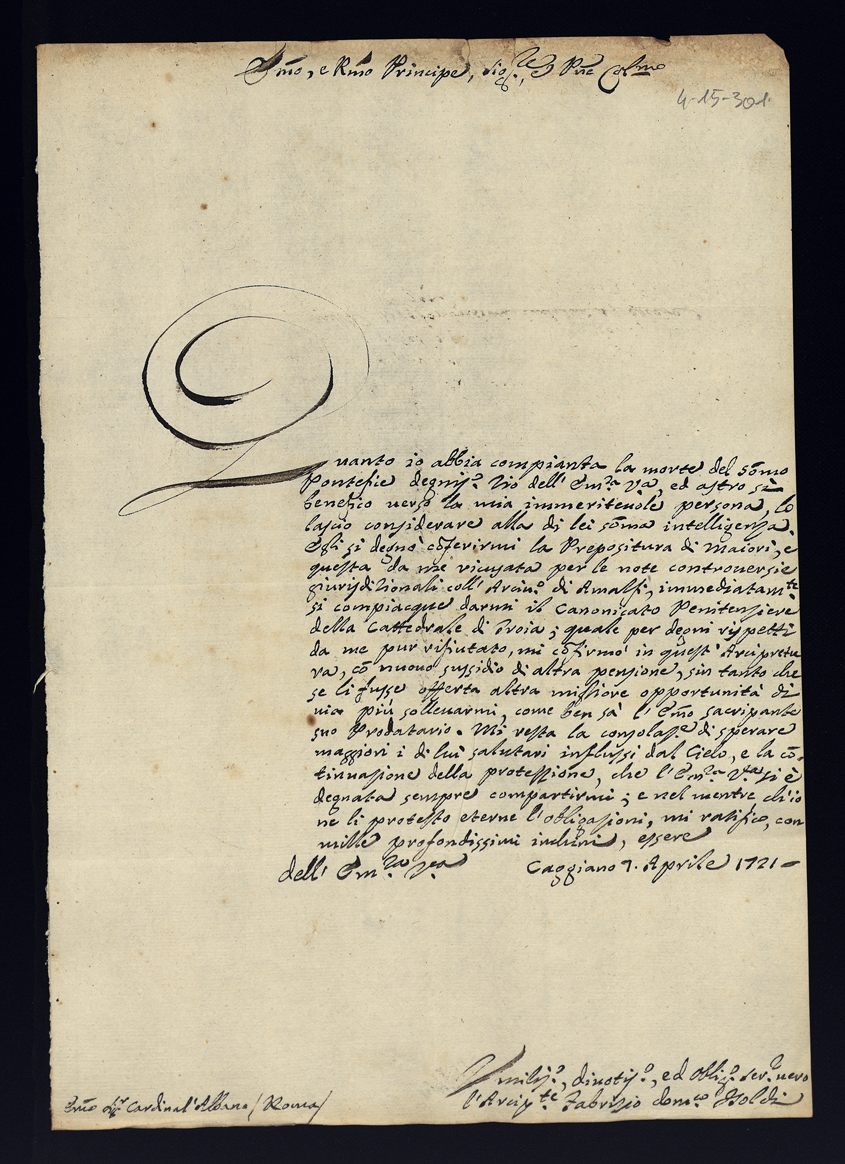 Em̃o, e Rm̃o Principe, Sig.re, e Pñe Col.mo
4-15-301.
Quanto io abbia compianta la morte del sõmo
Pontefice degniss.o Zio dell' Em.za V.a, ed astro sì
benefico verso la mia immeritevole persona, lo
lascio considerare alla di lei sõma intelligenza.
Egli si degnò cõferirmi la Prepositura di Maiori, e
questa da me ricusata per le note controversie
giurisdizionali coll' Arciv.o di Amalfi, immediatam.te
si compiacque darmi il Canonicato Penitenziere
della Cattedrale di Troia; quale per degni rispetti
da me pur rifiutato, mi cõfirmò in quest' Arcipretu
ra, cõ nuovo sussidio di altra pensione, sin tanto che
se li fusse offerta altra migliore opportunità di
via più sollevarmi, come ben sà l' Em̃o Sacripante
suo Prodatario. Mi resta la consolaz.e di sperare
maggiori i di lui salutari influssi dal Cielo, e la cõ-
tinuazione della protezzione, che l' Em.za V.ra si è
degnata sempre compartirmi; e nel mentre ch' io
ne li protesto eterne l' obligazioni, mi ratifico, con
mille profondissimi inchini, essere
dell' Em.za V.ra Caggiano 7. Aprile 1721
Umiliss.o, divotiss.o, ed obligss.o ser.e vero
l'Arcip.te Fabrizio Dom.co Isoldi
Em̃o Sig.r Cardinal' Albano / Roma /